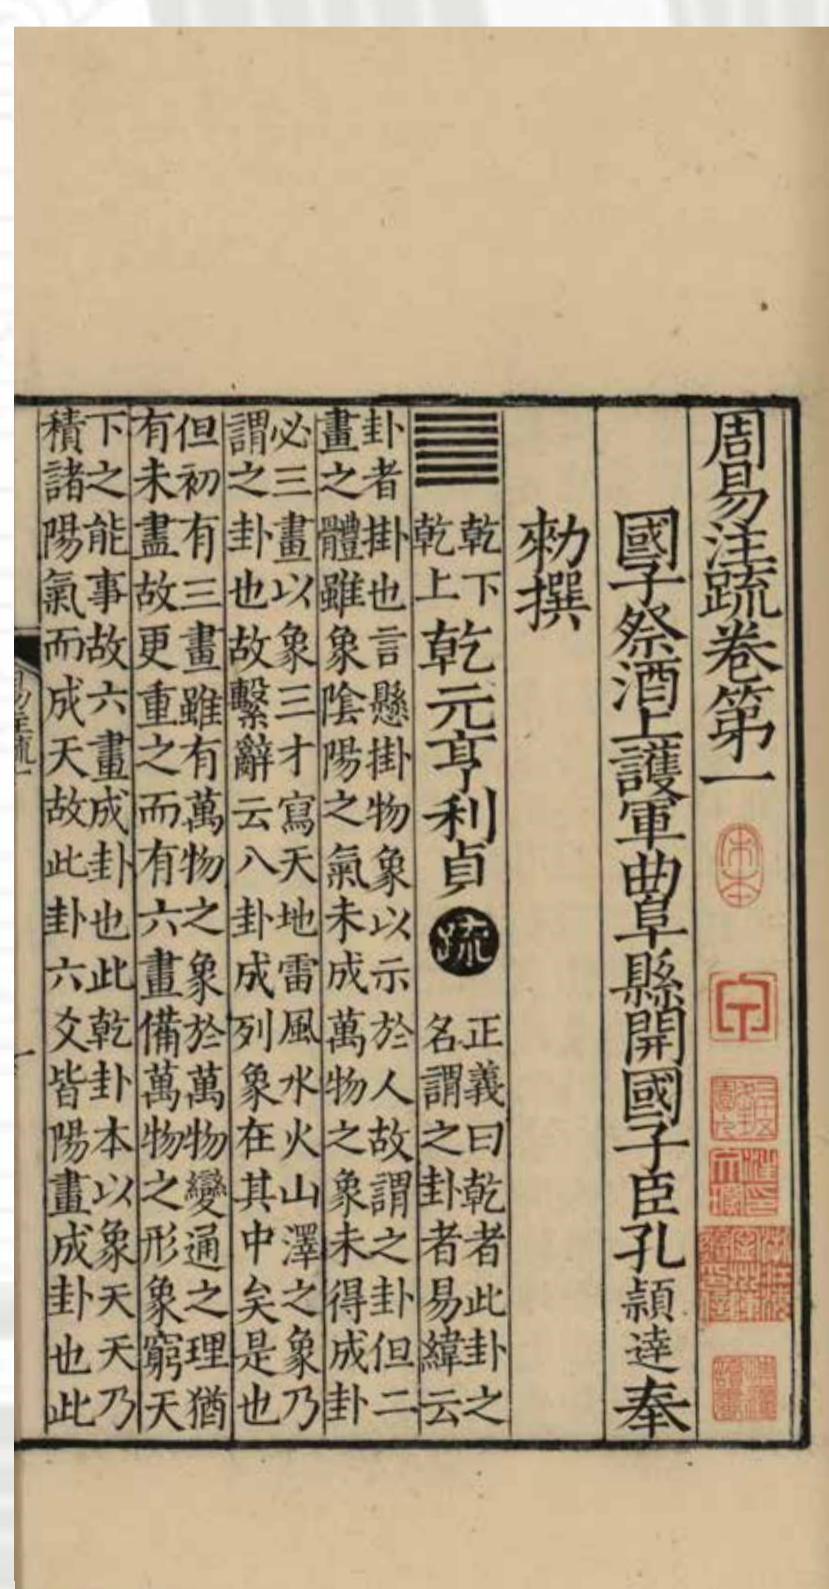 周易注疏卷第一
國子祭酒上護軍曲阜縣開國子臣孔穎達奉
勑撰
䷀
乾下
乾上
乾元亨利貞
疏
正義曰乾者此卦之
名謂之卦者易緯云
卦者掛也言懸掛物象以示於人故謂之卦但二
畫之體雖象陰陽之氣未成萬物之象未得成卦
必三畫以象三才寫天地雷風水火山澤之象乃
謂之卦也故繫辭云八卦成列象在其中矣是也
但初有三畫雖有萬物之象於萬物變通之理猶
有未盡故更重之而有六畫備萬物之形象窮天
下之能事故六畫成卦也此乾卦本以象天天乃
積諸陽氣而成天故此卦六爻皆陽畫成卦也此
易注疏一